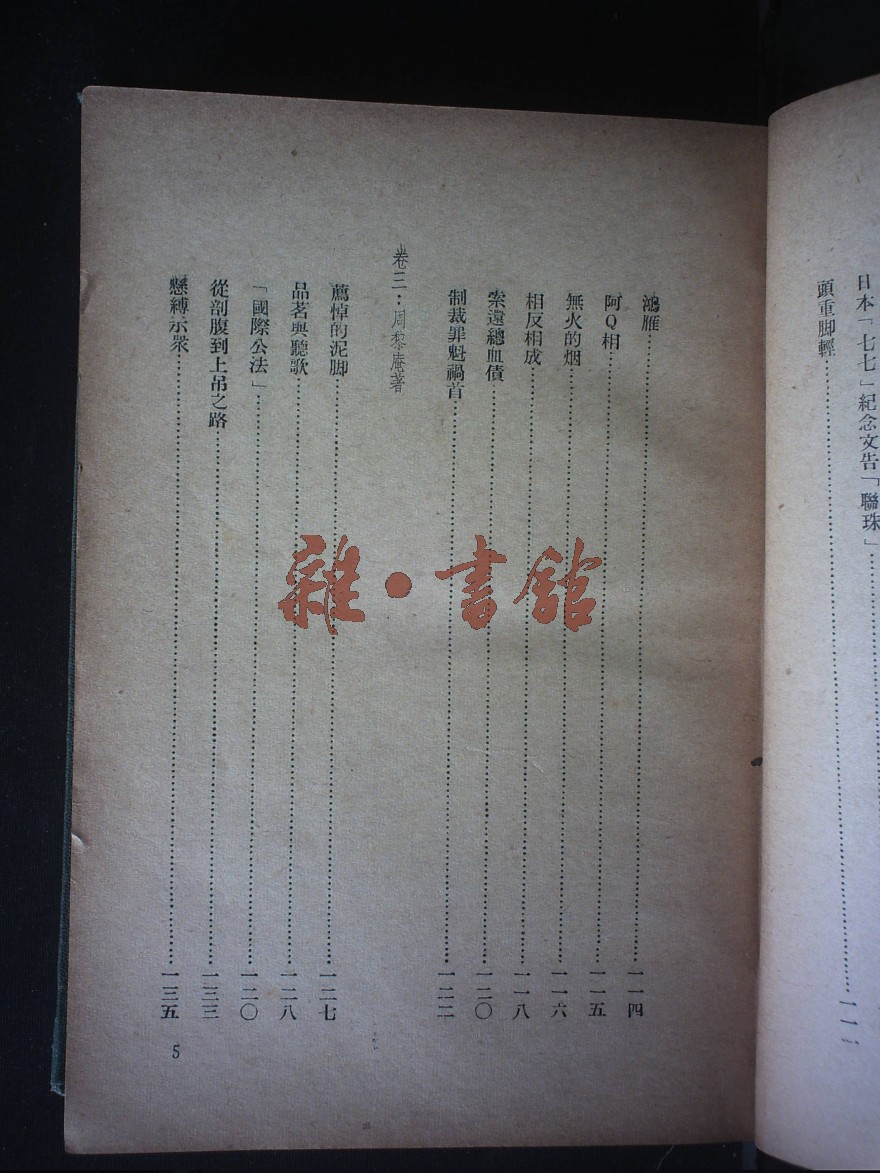 日本「七七」紀念文告「聯珠」
頭重脚輕……一一
鴻雁……一一四
阿Q相……一一五
無火的烟……一一六
相反相成……一一八
索還總血債……一二〇
制裁罪魁禍首……一二二
卷三：周黎庵著
薦悼的泥脚……一二七
品茗與聽歌……一二八
「國際公法」……一二〇
從剖腹到上吊之路……一三三
懸縛示衆……一三五
5
雜·書館